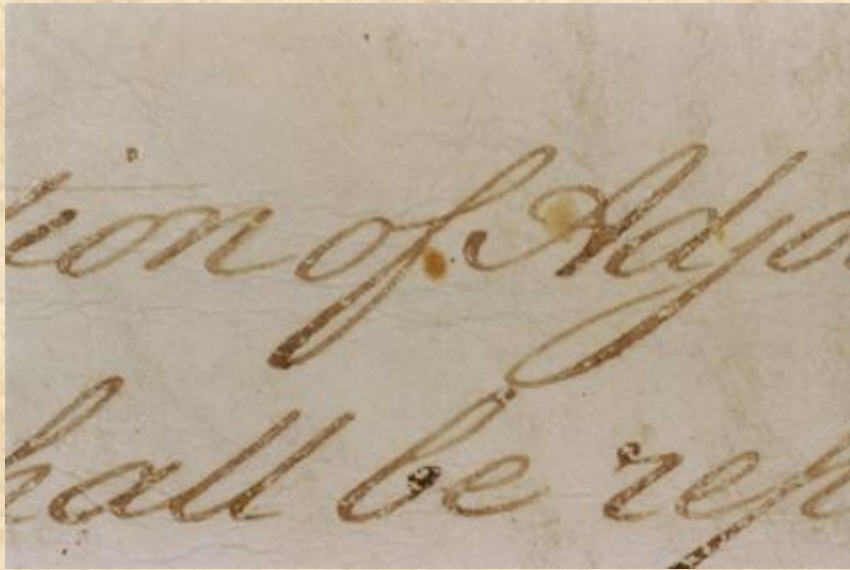 tion of Adjo
hall be rep